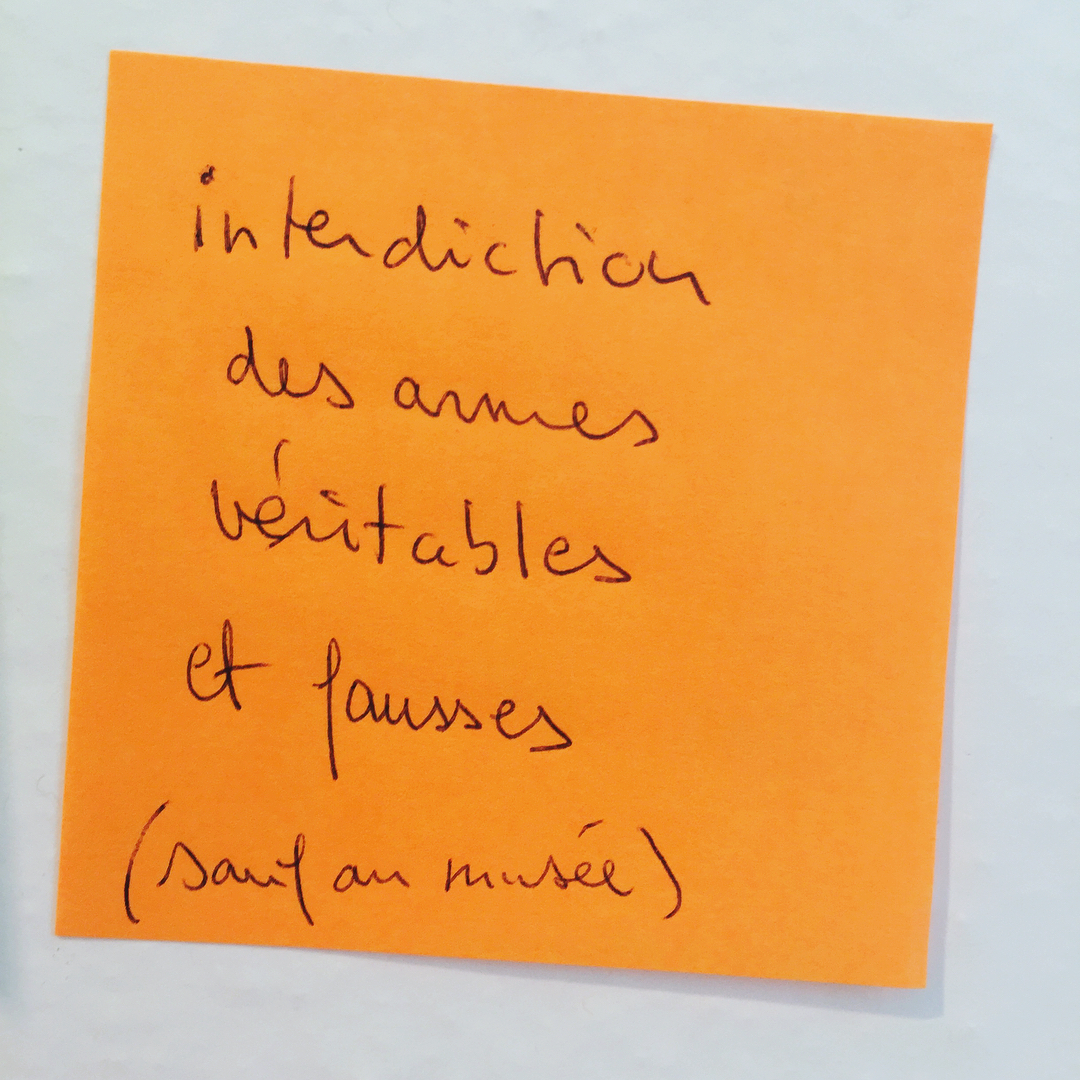 interdiction
des armes
véritables
et fausses
(sauf au musée)